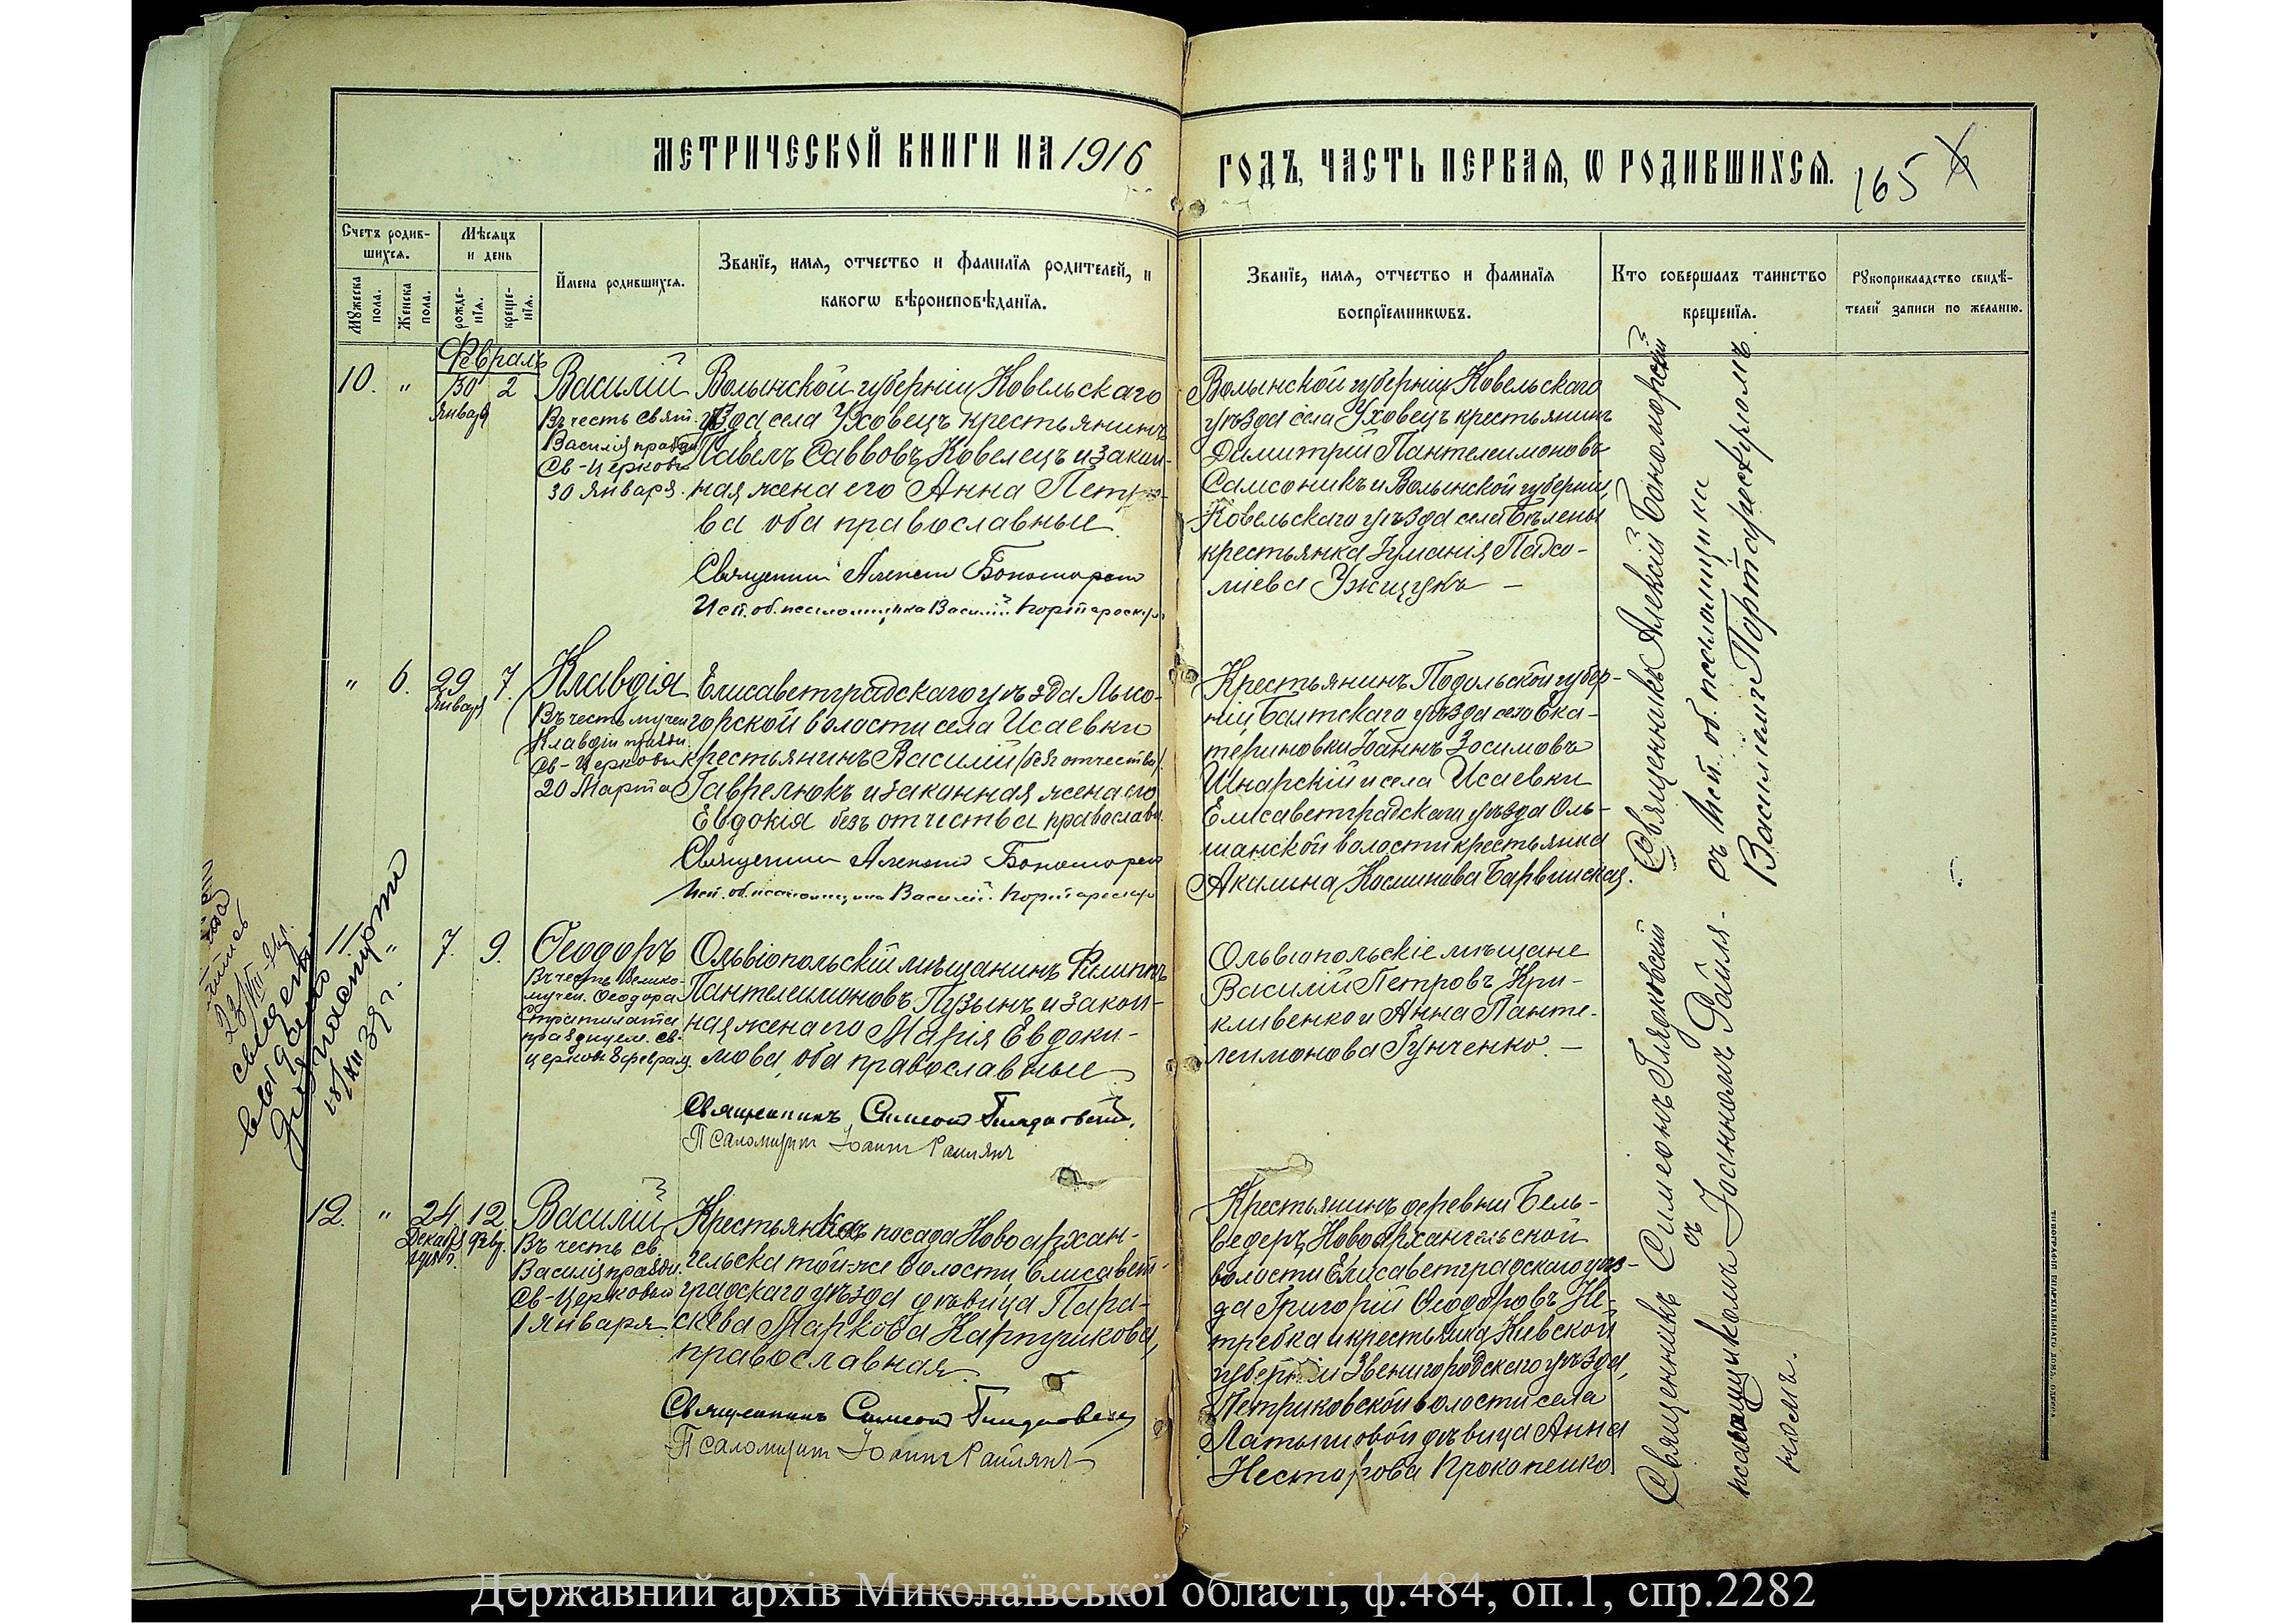 МЕТРИЧЕСКОЙ КНИГИ НА 1916
ГОДЪ, ЧАСТЬ ПЕРВАЯ, Ѡ РОДИВШИХСЯ.
165
Счетъ родив-
шихся.
Мужеска пола.
Женска пола.
Мѣсяцъ
и день
рожде-
нїя.
креще-
нїя.
Имена родившихся.
Званїе, имя, отчество и фамилїя родителей, и
какогѡ вѣроисповѣданїя.
Званїе, имя, отчество и фамилїя
воспрїемникѡвъ.
Кто совершалъ таинство
крещенїя.
Рукоприкладство свидѣ-
телей записи по желанію.
Февраль
10. " 30 2
Января
Василій
Въ честь свят.
Василія праздн.
Св-Церковью
30 Января.
Волынской губерніи Ковельскаго
уѣзда села Уховецъ крестьянинъ
Павелъ Саввовъ Ковелецъ и закон-
ная жена его Анна Петро-
ва оба православные
Священникъ Алексій
Исп. об. псаломщика Василій
Волынской губерніи Ковельскаго
уѣзда села Уховецъ крестьянинъ
Димитрій Пантелеимоновъ
Самсоникъ и Волынской губерніи,
Ковельскаго уѣзда села
крестьянка
" 6. 29 7.
Января
Клавдія
Въ честь мучен.
Клавдіи праздн.
Св-Церковью
20 Марта
Елисаветградскаго уѣзда Лысо-
горской волости села Исаевки
крестьянинъ Василій (безъ отчества)
Гаврелюкъ и законная жена его
Евдокія безъ отчества православн.
Священникъ Алексій
Исп. об. псаломщика Василій
Крестьянинъ Подольской губер-
ніи Балтскаго уѣзда села Ека-
териновки Іоаннъ Зосимовъ
Шнарскій и села Исаевки
Елисаветградскаго уѣзда Оль-
шанской волости крестьянка
Акилина Косминова Барвинская.
Священникъ Алексій Бономорскій
съ Исп. об. псаломщика
Василіемъ
11 " 7. 9.
Ѳеодоръ
Въ честь Велико-
мучен. Ѳеодора
Стратилата
празднуем. св.
церков 8 февраля.
Ольвіопольскій мѣщанинъ Филиппъ
Пантелеимоновъ Пузынъ и закон-
ная жена его Марія Евдоки-
мова, оба православные
Священникъ Симеонъ
Псаломщикъ Іоаннъ
Ольвіопольскіе мѣщане
Василій Петровъ Кри-
кливенко и Анна Панте-
леимонова Гунченко.
12. " 24 12
Декабря Фев.
Василій
Въ честь св.
Василія праздн.
Св-Церковью
1 Января.
Крестьянка посада Новоархан-
гельска той-же волости, Елисавет-
градскаго уѣзда дѣвица Пара-
скева Маркова Карпушкова,
православная.
Священникъ Симеонъ
Псаломщикъ Іоаннъ
Крестьянинъ деревни Бель-
ведеръ, Новоархангельской
волости Елисаветградскаго уѣз-
да Григорій Ѳеодоровъ Не-
требка и крестьянка Кіевской
губерніи Звенигородскаго уѣзда,
Петриковской волости села
Латышовой дѣвица Анна
Несторова Прокопенко
Священникъ Симеонъ
съ
псаломщикомъ Іоанномъ Райля-
номъ.
Державний архів Миколаївської області, ф.484, оп.1, спр.2282